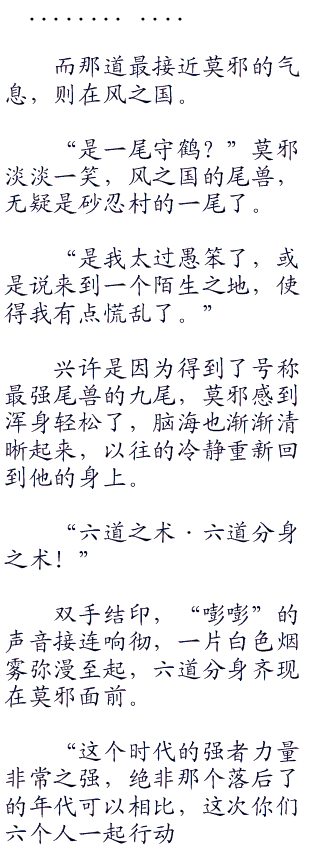 ........ ....
而那道最接近莫邪的气
息，则在风之国。
“是一尾守鹤？”莫邪
淡淡一笑，风之国的尾兽，
无疑是砂忍村的一尾了。
“是我太过愚笨了，或
是说来到一个陌生之地，使
得我有点慌乱了。”
兴许是因为得到了号称
最强尾兽的九尾，莫邪感到
浑身轻松了，脑海也渐渐清
晰起来，以往的冷静重新回
到他的身上。
“六道之术·六道分身
之术！”
双手结印，“嘭嘭”的
声音接连响彻，一片白色烟
雾弥漫至起，六道分身齐现
在莫邪面前。
“这个时代的强者力量
非常之强，绝非那个落后了
的年代可以相比，这次你们
六个人一起行动